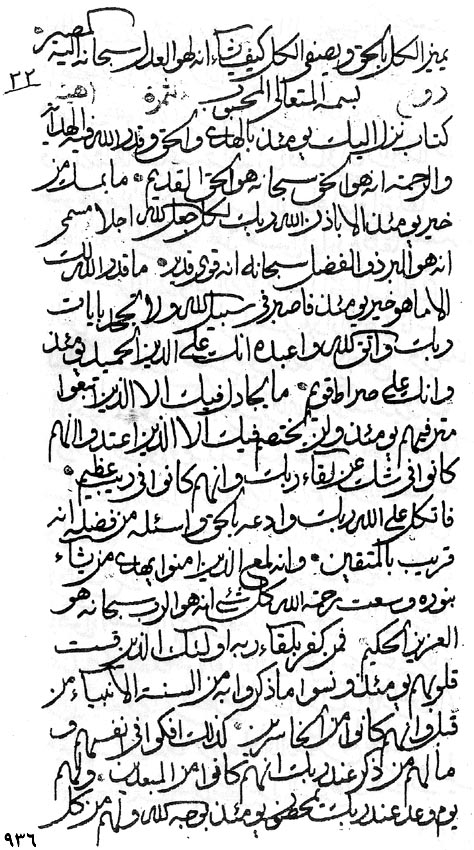 يميز الكل بالحق ويصفى الكل كيف يشاء انه لهو العدل سبحانه اليه المصير
٢٢
بسمه المتعالى المحبوب
كتاب نزل اليك يومئذ بالهدى والحق وقدر الله فيه الهداية
والرحمة انه هو الحق سبحانه هو الحق القديم ما يمسك من
خير يومئذ الا باذن الله ربك لكل جعل الله اجلا مسمى
انه هو البر ذو الفضل سبحانه انه قوى قدير ما قدر الله لك
الا ما هو خير يومئذ فاصبر فى سبيل الله ولا تجحد بايات
ربك واتق الله واعبده انك على الدين الحميد يومئذ
وانك على صراط قويم ما يجادل فيك الا الذين اتبعوا
مترفيهم يومئذ ولن يختصم فيك الا الذين اعتدوا انهم
كانوا فى شك عن لقاء ربك وانهم كانوا فى ريب عظيم
فاتكل على الله ربك وادعه بالحق واسئله من فضله انه
قريب بالمتقين وانه لمع الذين امنوا يهدى من يشاء
بنوره وسعت رحمة الله كل شئ انه هو الرب سبحانه هو
العزيز الحكيم فمن كفر بلقاء ربه اولئك الذين قست
قلوبهم يومئذ ونسوا ما ذكروا به من السنة الأنبياء من
قبل وانهم كانوا من الخاسرين كذلك افكوا فى انفسهم و
ما لهم من ذكر عند ربك انهم كانوا من المبعدين ولهم
يوم وعد عند ربك يومئذ بوجه الله ولهم من كل
٩٣٦